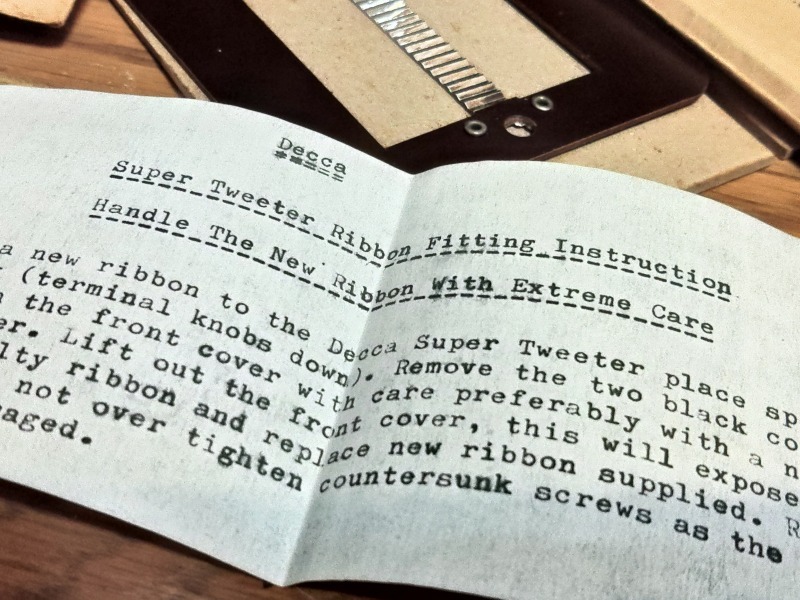 Decca
Super Tweeter Ribbon Fitting Instruction
Handle The New Ribbon With Extreme Care
a new ribbon to the Decca Super Tweeter place sp
(terminal knobs down). Remove the two black co
the front cover with care preferably with a n
er. Lift out the front cover, this will expose
lty ribbon and replace new ribbon supplied. R
not over tighten countersunk screws as the
aged.